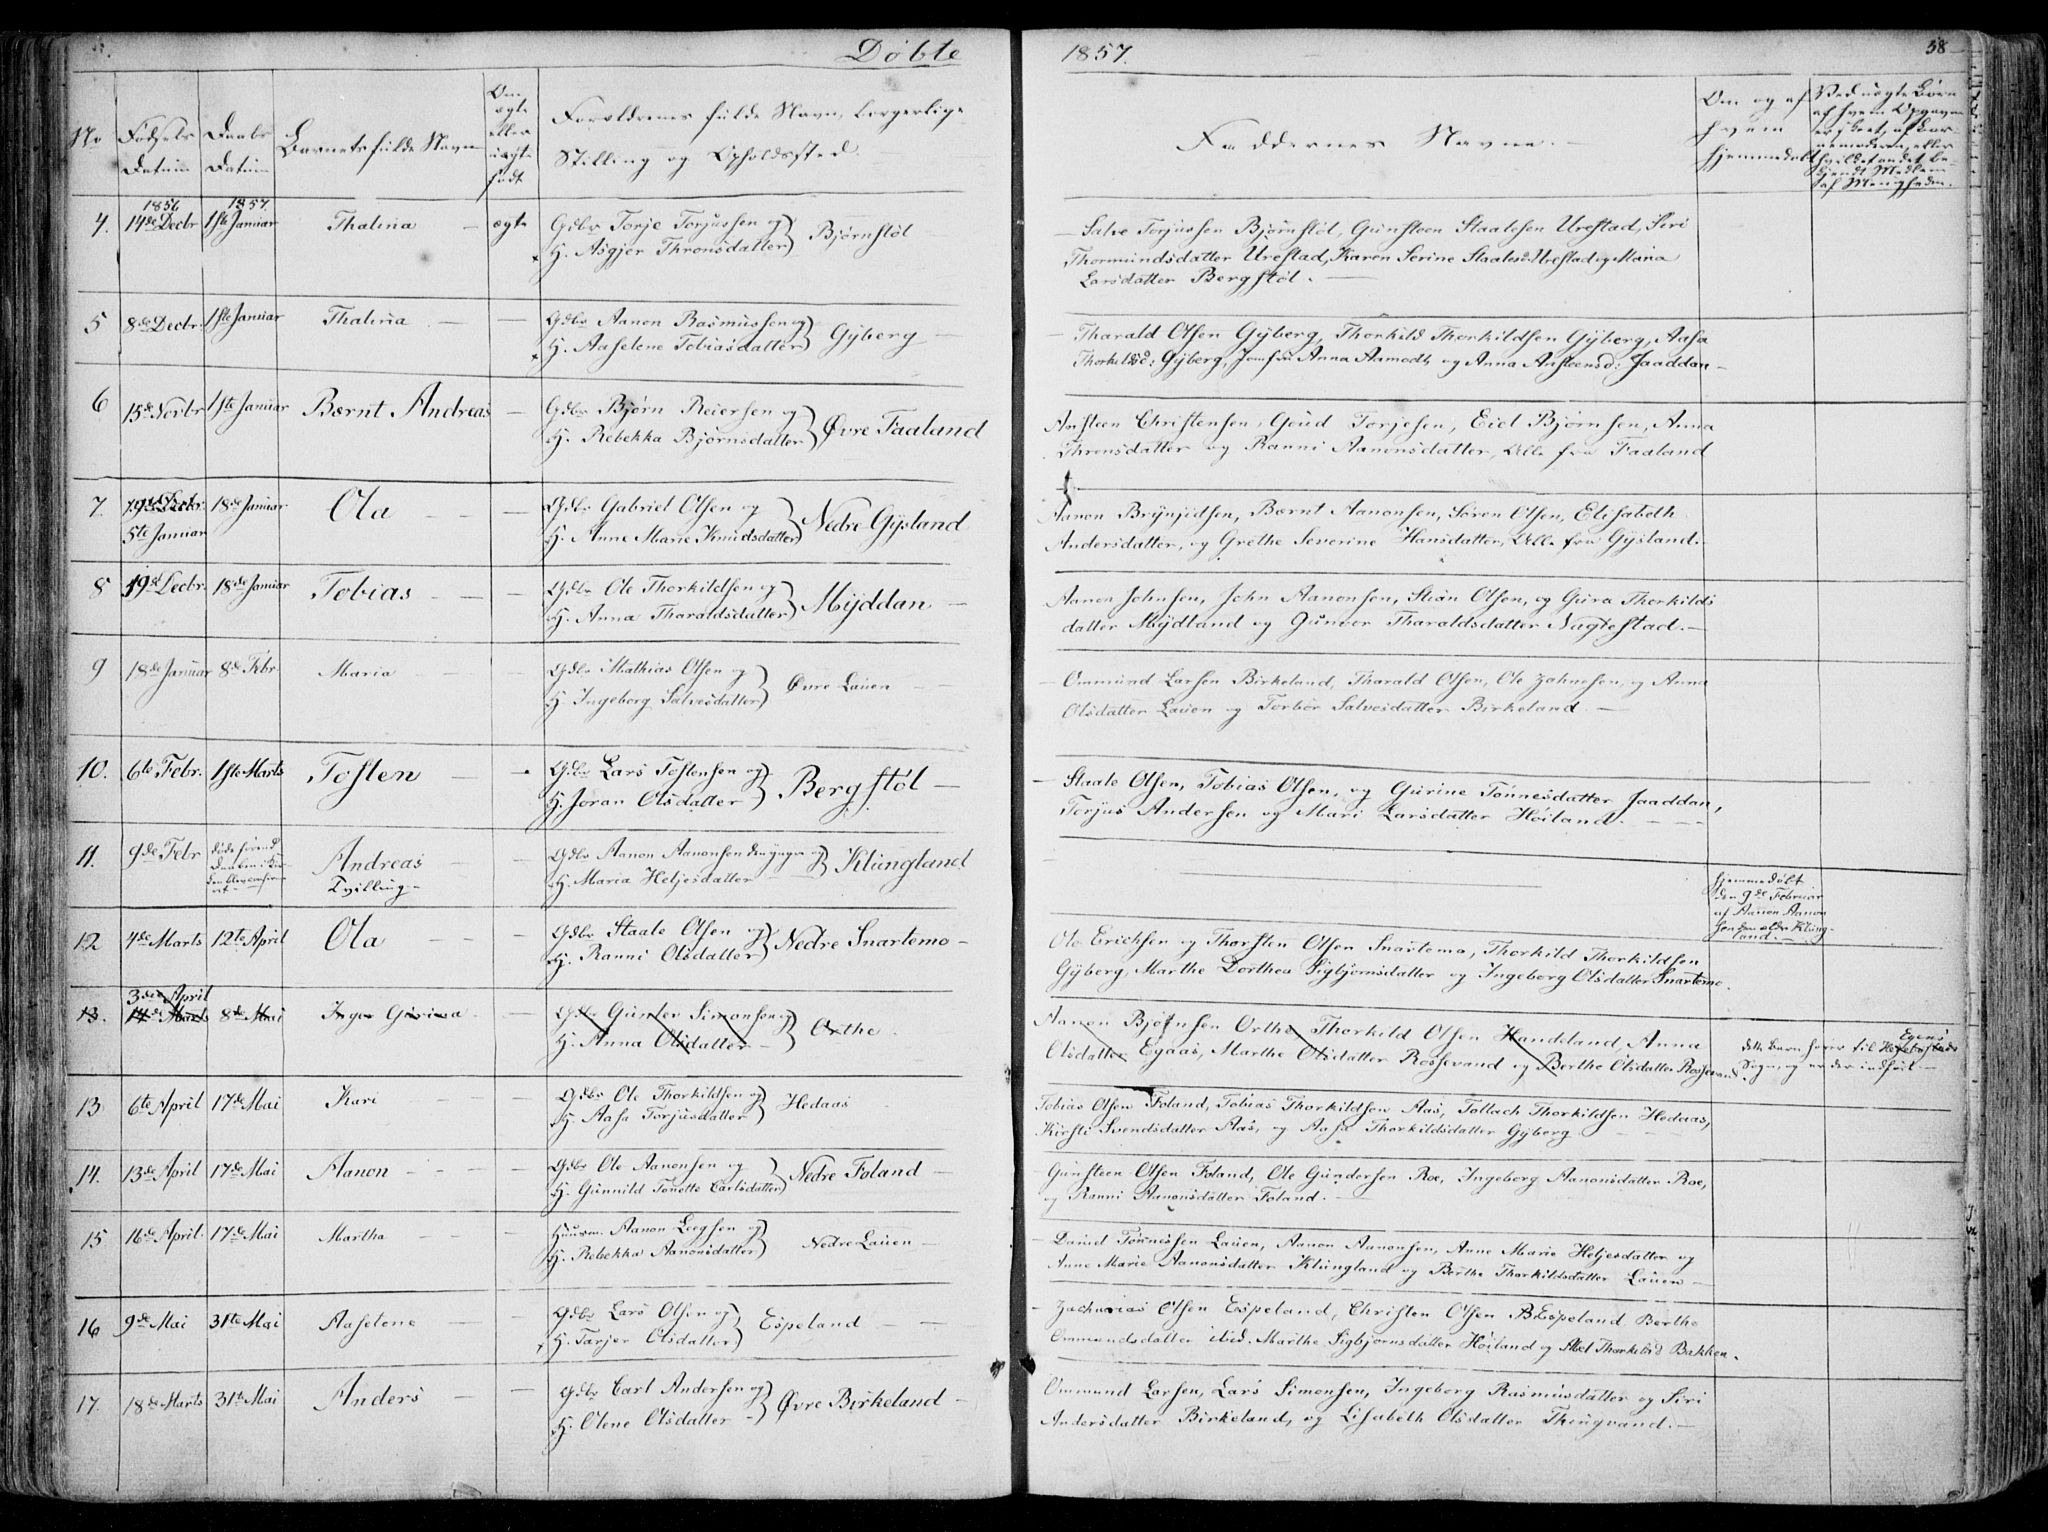 Døbte 1857. 38
No
Fødsels Datum
Daabs Datum
Barnets fulde Navn
Om ægte eller uægte født
Forældrenes fulde Navn, borgerlige
Stilling og Opholdssted.
Faddernes Navne.
Om og af hvem hjemmedøbt
Ved uægte Børn af hvem Opgaven er skeet, af Barnemoderen, eller hvilket andet bekjendt Medlem af Menigheden.
1856 1857.
4. 14de Decbr 1ste Januar Thalina - ægte Gdbr Torje Torjussen og Bjørnstøl
H. Asgjer Thronsdatter
Salve Torjussen Bjørnstøl, Gunsteen Staalesen Urestad, Siri
Thormundsdatter Urestad, Karen Serine Staalesd. Urestad og Maria
Larsdatter Bergstøl. -
5 8de Decbr. 1ste Januar Thalina - - Gdbr Aanon Rasmussen og Gyberg -
H. Aaselene Tobiasdatter
Tharald Olsen Gyberg, Thorkild Thorkildsen Gyberg, Aasa
Thorkildsd: Gyberg, Jomfru Anna Aamodt, og Anna Aasteensd: Jaaddan -
6 15de Novbr 1ste Januar Bernt Andreas - Gdbr Bjørn Reiersen og Øvre Faaland
H. Rebekka Bjørnsdatter
Ansteen Christensen, Goud Torjesen, Eiel Bjørnsen, Anna
Thronsdatter og Ranni Aanonsdatter, Alle fra Faaland
7. 5te Januar 18de Januar Ola - - - Gdbr Gabriel Olsen og Nedre Gysland
H. Anne Marie Knudsdatter
Aanon Brynjidsen, Bernt Aanonsen, Søren Olsen, Elisabeth
Andersdatter, og Grethe Severine Hansdatter, Alle fra Gysland. -
8 19de Decbr. 18de Januar Tobias - - - Gdbr Ole Thorkildsen og Myddan -
H. Anna Tharaldsdatter
Aanon Johnsen, John Aanonsen, Stian Olsen, og Gura Thorkilds
datter Mydland og Gunvor Tharaldsdatter Nagtestad. -
9 18de Januar 8de Febr. Maria - - - Gdbr Mathias Olsen og Øvre Lauen -
H. Ingeborg Salvesdatter
Ommund Larsen Birkeland, Tharald Olsen, Ole Zahnesen, og Anna
Olsdatter Lauen og Torbor Salvesdatter Birkeland. -
10. 6te Febr. 1ste Marts Tosten - Gdbr Lars Tostensen og Bergstøl -
H. Joran Olsdatter
- Staale Olsen, Tobias Olsen, og Gurine Tønnesdatter Jaaddan,
Torjus Andersen og Mari Larsdatter Høiland. - - -
11. 9de Febr Andreas - - Gdbr Aanon Aanonsen den yngre og Klungland
Tvilling - H. Maria Heljesdatter
hjemmedøbt
den 9de Februar
af Aanon Aanon
sen den eldre Klung-
land. -
12 4de Marts 12te April Ola - - - Gdbr Staale Olsen og Nedre Snartemo -
H. Ranni Olsdatter
Ole Ericksen og Thorsten Olsen Snartemo, Thorkild Thorkildsen
Gyberg, Marthe Dorthea Sigbjørnsdatter og Ingeborg Olsdatter Snartemo.
3die April
13. 14de Marts 8de Mai Inger Gurina - Gdbr Gunder Simonsen og Orthe
H. Anna Olsdatter -
Aanon Bjørnsen Orthe Thorkild Olsen Handeland, Anna
Olsdatter Egaas, Marthe Olsdatter Rossevand og Berthe Olsdatter Rossevand
dette Barn hører til Egens
Sogn, og er der indført -
13 6te April 17de Mai Kari - - - Gdbr Ole Thorkildsen og Hedaas
H. Aasa Torjusdatter
Tobias Olsen Foland, Tobias Thorkildsen Aas, Tollach Thorkildsen Hedaas,
Kirsti Svendsdatter Aas, og Aasa Thorkildsdatter Gyberg - - -
14. 13de April 17de Mai Aanon - - - Gdbr Ole Aanonsen og Nedre Foland
H. Gunnild Tonette Carlsdatter
Gunsteen Olsen Foland, Ole Gundersen Roe, Ingeborg Aanonsdatter Roe,
og Ranni Aanonsdatter Foland. -
15 16de April. 17de Mai Martha - - - Huusm. Aanon Leegsen og Nedre Lauen -
H. Rebekka Aanonsdatter
- Daniel Tønnessen Lauen, Aanon Aanonsen, Anne Marie Heljesdatter og
Anne Marie Aanonsdatter Klungland og Berthe Thorkildsdatter Lauen -
16 9de Mai 31te Mai Aaselene - - Gdbr Lars Olsen og Espeland - -
H. Tarjer Olsdatter
- Zacharias Olsen Espeland, Christen Olsen Espeland Berthe
Ommundsdatter ibid. Marthe Sigbjørnsdatter Høiland og Abel Thorkilsd Bakken.
17. 18de Marts 31te Mai Anders - - Gdbr Carl Andersen og Øvre Birkeland -
H. Olene Olsdatter -
Ommund Larsen, Lars Simonsen, Ingeborg Rasmusdatter og Siri
Andersdatter Birkeland, og Lisabeth Olsdatter Thingvand. -